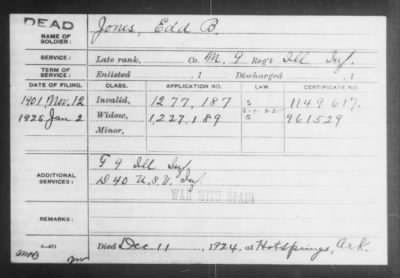 DEAD
NAME OF SOLDIER: Jones, Edd B.
SERVICE: Late rank, Co. M. 9 Reg't Ill Inf.
TERM OF SERVICE: Enlisted , 1 Discharged , 1
DATE OF FILING. CLASS. APPLICATION NO. LAW. CERTIFICATE NO.
1901, Nov. 12 Invalid, 1277,187 S 1149617.
1925 Jan 2 Widow, 1,227,189 S 961529
Minor,
ADDITIONAL SERVICES:
F 9 Ill Inf
D 40 U.S.V. Inf
WAR WITH SPAIN
REMARKS:
Died Dec 11, 1924, at Hotsprings, Ark.